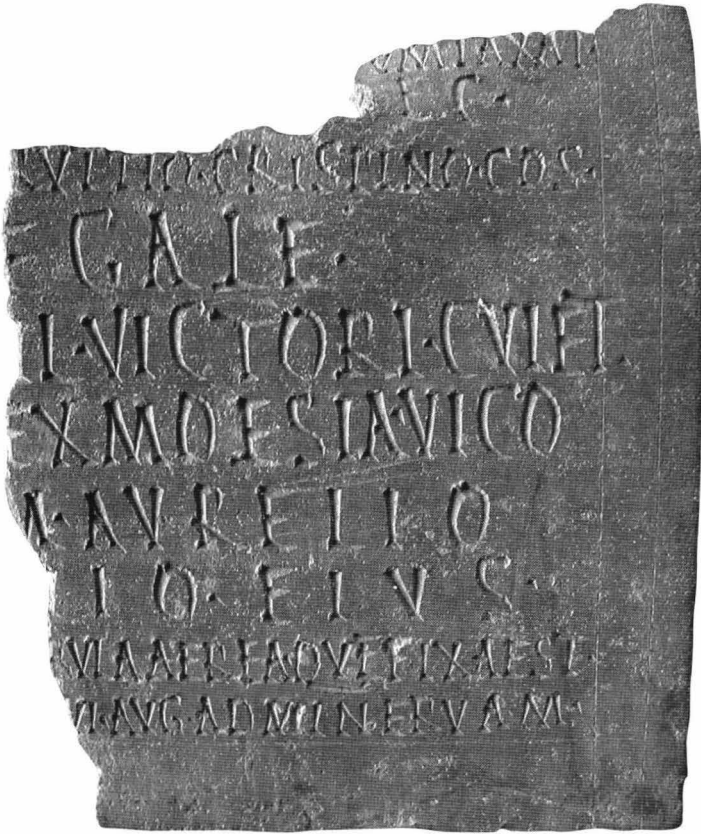 VMTAXAT·
E C·
RVTTIO·CRISPINO·COS·
E GALE·
I·VICTORI·CVLET·
EX MOESIA·VICO
A·AVRELIO
IO·EIVS·
VLA AEREA QVE FIXA EST·
VI·AVG·AD MINERVAM·